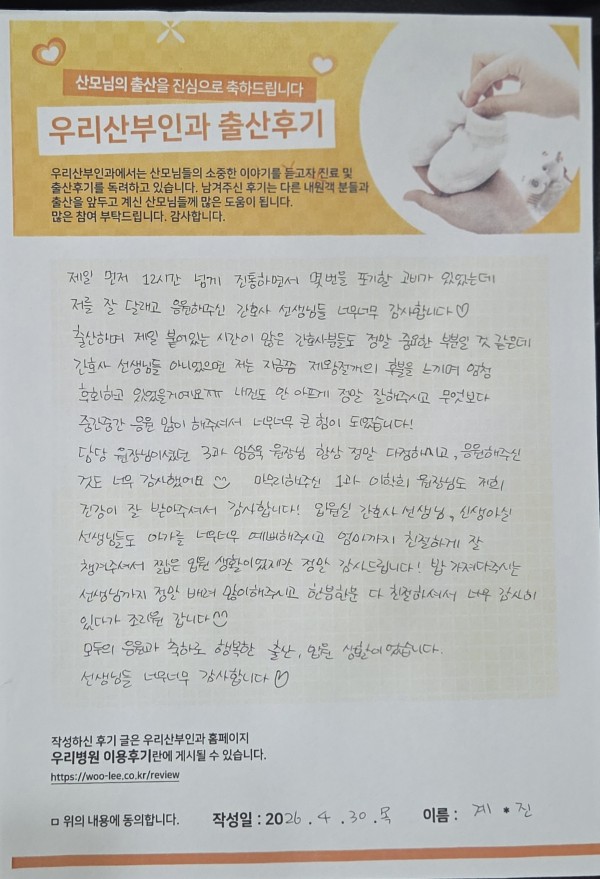 산모님의 출산을 진심으로 축하드립니다
우리산부인과 출산후기
우리산부인과에서는 산모님들의 소중한 이야기를 듣고자 진료 및
출산후기를 독려하고 있습니다. 남겨주신 후기는 다른 내원객 분들과
출산을 앞두고 계신 산모님들께 많은 도움이 됩니다.
많은 참여 부탁드립니다. 감사합니다.
제일 먼저 12시간 넘게 진통하면서 몇번을 포기할 고비가 있었는데
저를 잘 달래고 응원해주신 간호사 선생님들 너무너무 감사합니다♡
출산하며 제일 붙어있는 시간이 많은 간호사분들도 정말 중요한 부분일 것 같은데
간호사 선생님들 아니었으면 저는 지금쯤 제왕절개의 후불을 느끼며 엄청
후회하고 있었을거에요ㅠㅠ 내진도 안 아프게 정말 잘해주시고 무엇보다
중간중간 응원 많이 해주셔서 너무너무 큰 힘이 되었습니다!
담당 원장님이셨던 3과 임승욱 원장님 항상 정말 다정하시고, 응원해주신
것도 너무 감사했어요 마무리해주신 1과 이학희 원장님도 저희
진강이 잘 받아주셔서 감사합니다! 입원실 간호사 선생님, 신생아실
선생님들도 아가를 너무너무 예뻐해주시고 엄마까지 친절하게 잘
챙겨주셔서 짧은 입원 생활이었지만 정말 감사드립니다! 밥 가져다주시는
선생님까지 정말 배려 많이해주시고 한분한분 다 친절하셔서 너무 감사히
있다가 조리원 갑니다
모두의 응원과 축하로 행복한 출산, 입원 생활이었습니다.
선생님들 너무너무 감사합니다♡
작성하신 후기 글은 우리산부인과 홈페이지
우리병원 이용후기란에 게시될 수 있습니다.
https://woo-lee.co.kr/review
ㅁ 위의 내용에 동의합니다. 작성일 : 2026.4.30.목 이름 : 계*진